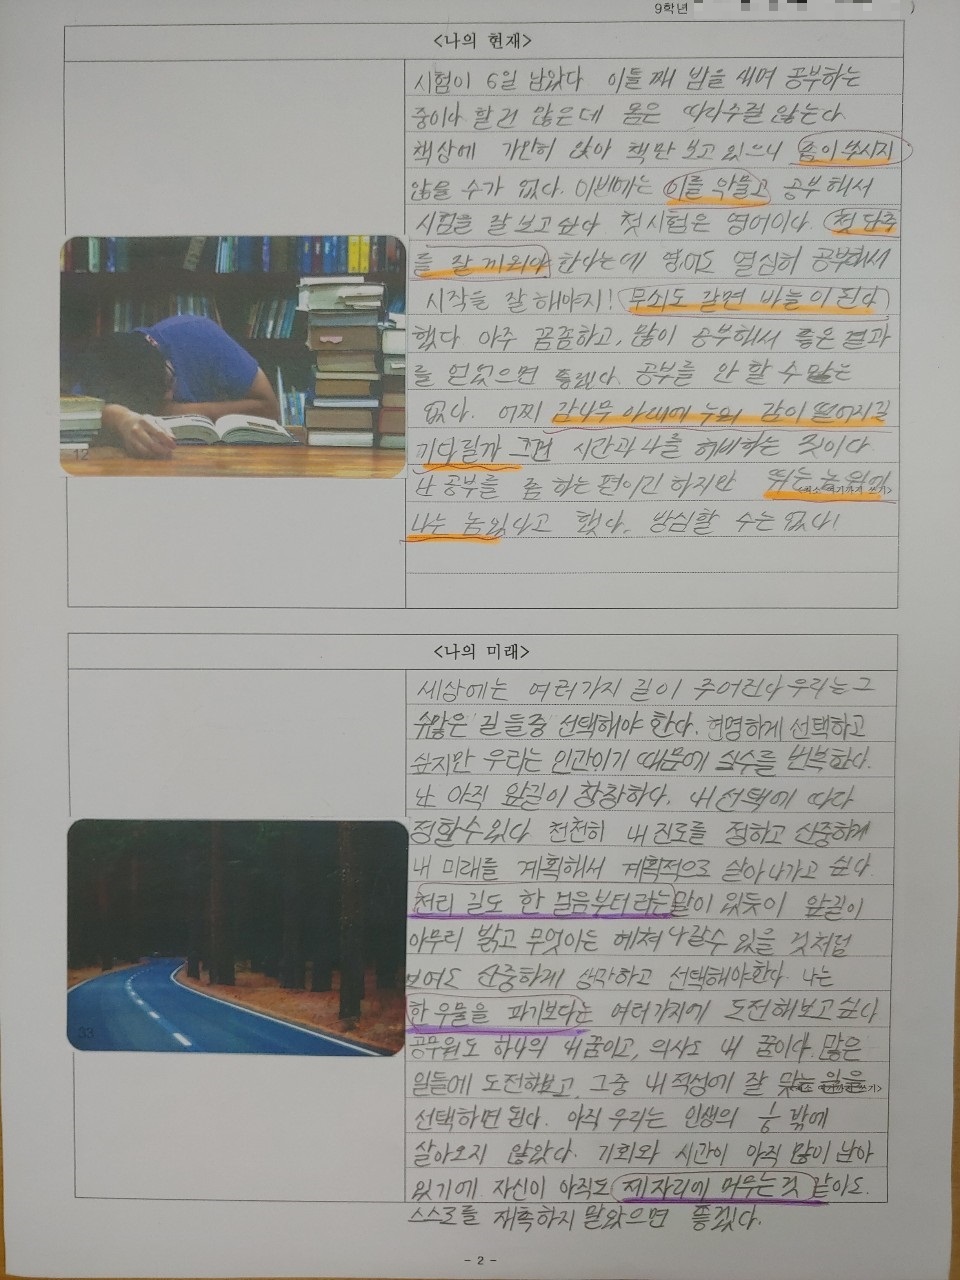 9학년 )
<나의 현재>
시험이 6일 남았다 이틀 째 밤을 새며 공부하는
중이다 할건 많은데 몸은 따라주질 않는다
책상에 가만히 앉아 책만 보고 있으니 좀이 쑤시지
않을 수가 없다. 이번에는 이를 악물고 공부해서
시험을 잘 보고싶다 첫 시험은 영어이다. 첫 단추
를 잘 끼워야 한다는데 영어도 열심히 공부해서
시작을 잘 해야지! 무쇠도 갈면 바늘이 된다
했다 아주 꼼꼼하고, 많이 공부해서 좋은 결과
를 얻었으면 좋겠다. 공부를 안 할 수 는
없다. 어찌 감나무 아래에 누워 감이 떨어지길
기다릴까 그건 시간과 나를 허비하는 것이다.
난 공부를 좀 하는 편이긴 하지만 뛰는 놈 위에
나는 놈있다고 했다. 방심할 수는 없다!
12
<나의 미래>
세상에는 여러가지 길이 주어진다 우리는 그
수많은 길 들중 선택해야 한다. 현명하게 선택하고
싶지만 우리는 인간이기 때문에 실수를 번복한다.
난 아직 앞길이 창창하다. 내 선택에 따라
정할수 있다 천천히 내 진로를 정하고 신중하게
내 미래를 계획해서 계획적으로 살아 나가고 싶다.
천리 길도 한 걸음부터 라는 말이 있듯이 앞길이
아무리 밝고 무엇이든 헤쳐 나갈수 있을 것처럼
보여도 신중하게 생각하고 선택해야한다. 나는
한 우물을 파기보다는 여러가지에 도전해보고싶다
공무원도 하나의 내꿈이고, 의사도 내 꿈이다. 많은
일들에 도전해보고, 그중 내 적성에 잘 맞는 일을
선택하면 된다. 아직 우리는 인생의 1/6 밖에
살아오지 않았다. 기회와 시간이 아직 많이 남아
있기에 자신이 아직도 제자리에 머무는 것 같아도.
스스로를 재촉하지 말았으면 좋겠다.
33
- 2 -